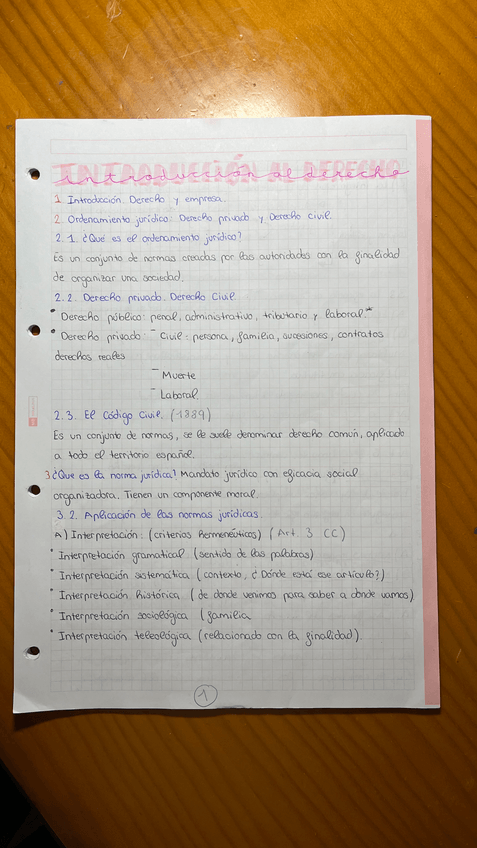 INTRODUCCIÓN AL DERECHO
introducción al derecho
1. Introducción. Derecho y empresa.
2. Ordenamiento jurídico: Derecho privado y Derecho civil
2.1. ¿Qué es el ordenamiento jurídico?
Es un conjunto de normas creadas por las autoridades con la finalidad
de organizar una sociedad.
2.2. Derecho privado. Derecho Civil.
• Derecho público: penal, administrativo, tributario y laboral.*
• Derecho privado: - Civil: persona, familia, sucesiones, contratos
derechos reales
- Muerte
- Laboral.
2.3. El Código Civil. (1889)
Es un conjunto de normas, se le suele denominar derecho común, aplicado
a todo el territorio español.
3 ¿Que es la norma jurídica? Mandato jurídico con eficacia social
organizadora. Tienen un componente moral.
3.2. Aplicación de las normas jurídicas.
A) Interpretación: (criterios hermenéuticos) (Art. 3 CC)
• Interpretación gramatical (sentido de las palabras)
• Interpretación sistemática (contexto, ¿Dónde está ese artículo?)
• Interpretación histórica (de donde venimos para saber a donde vamos)
• Interpretación sociológica (familia
• Interpretación teleológica (relacionado con la finalidad).
1